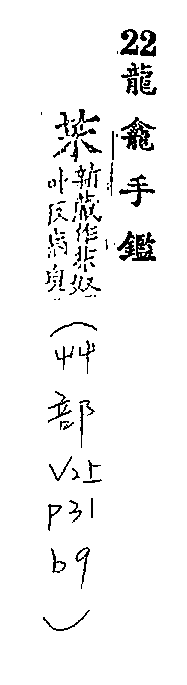 22龍龕手鑑
新藏作奴
叶反病皃
（艸部V2上P31b9）